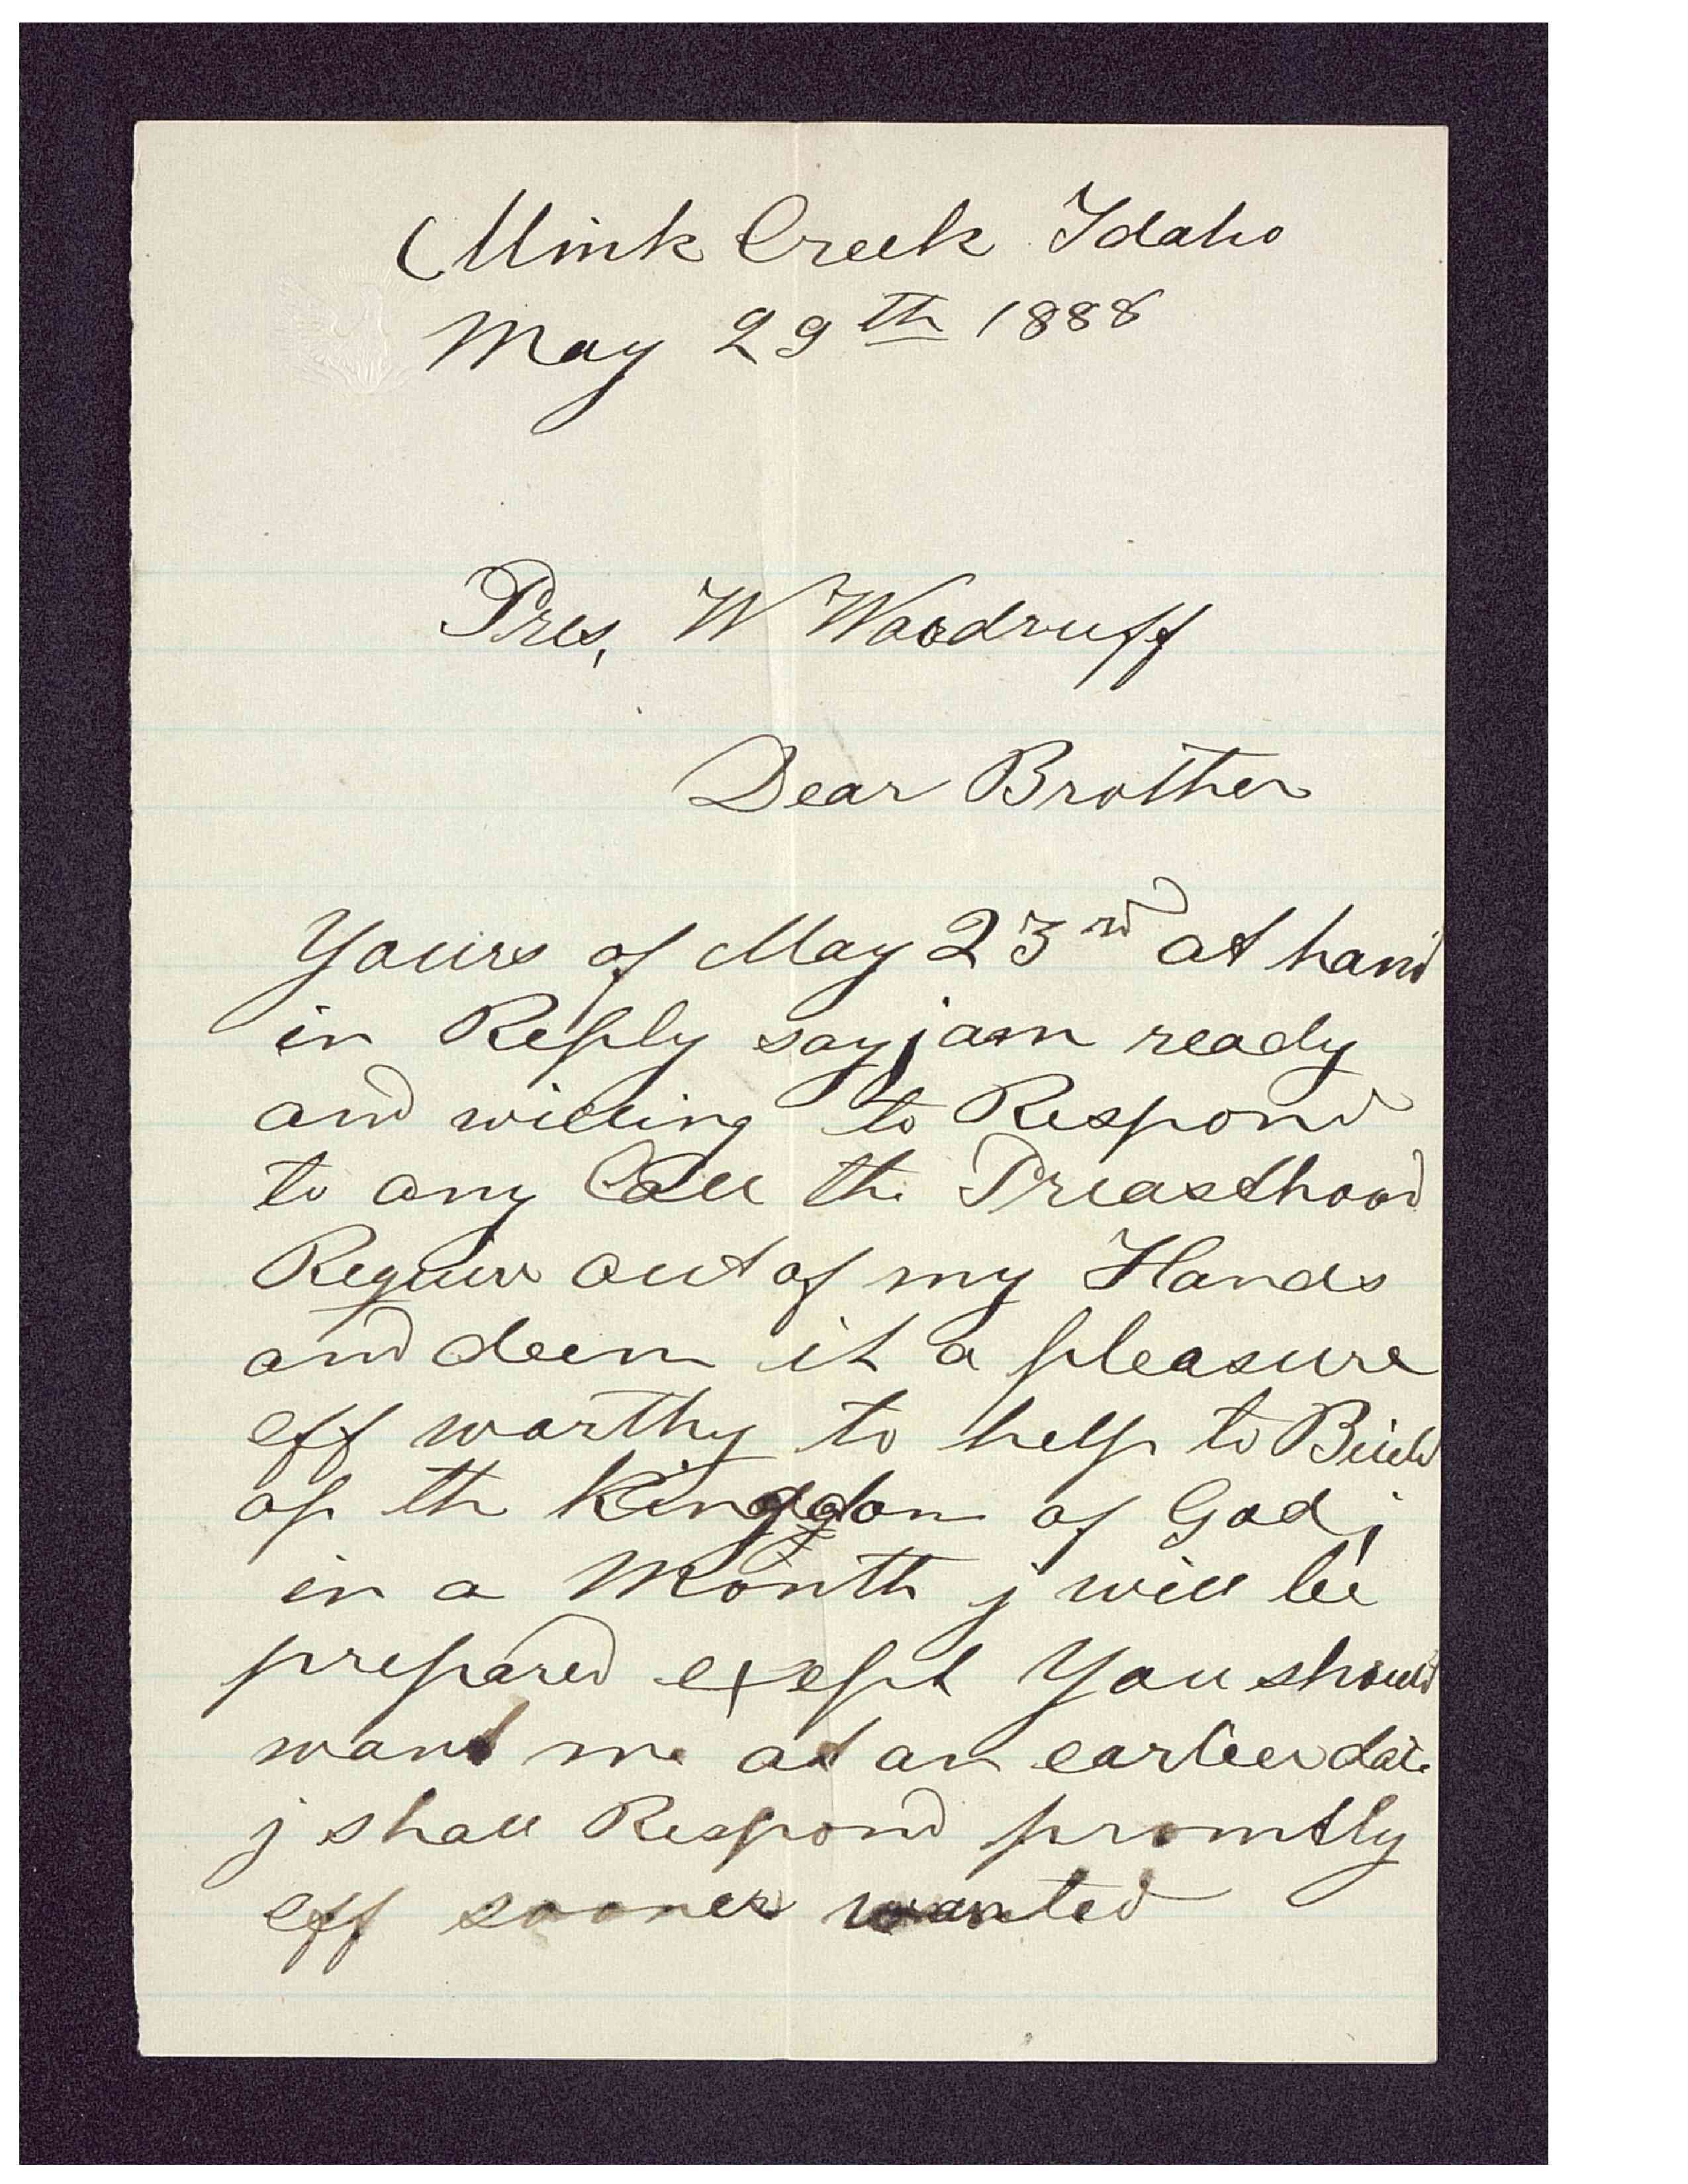 Mink Creek Idaho
May 29th 1888
Pres, W Woodruff
Dear Brother
Yours of May 23rd at hand
in Reply say j am ready
and willing to Respond
to any Call the Preasthood
Requier out of my Hands
and deem it a pleasure
eff worthy to help to Build
op th Kingdom of God j
in a Month j will be
prepared exept You should
want me at an earlier date
j shall Respond promtly
eff sooner wanted